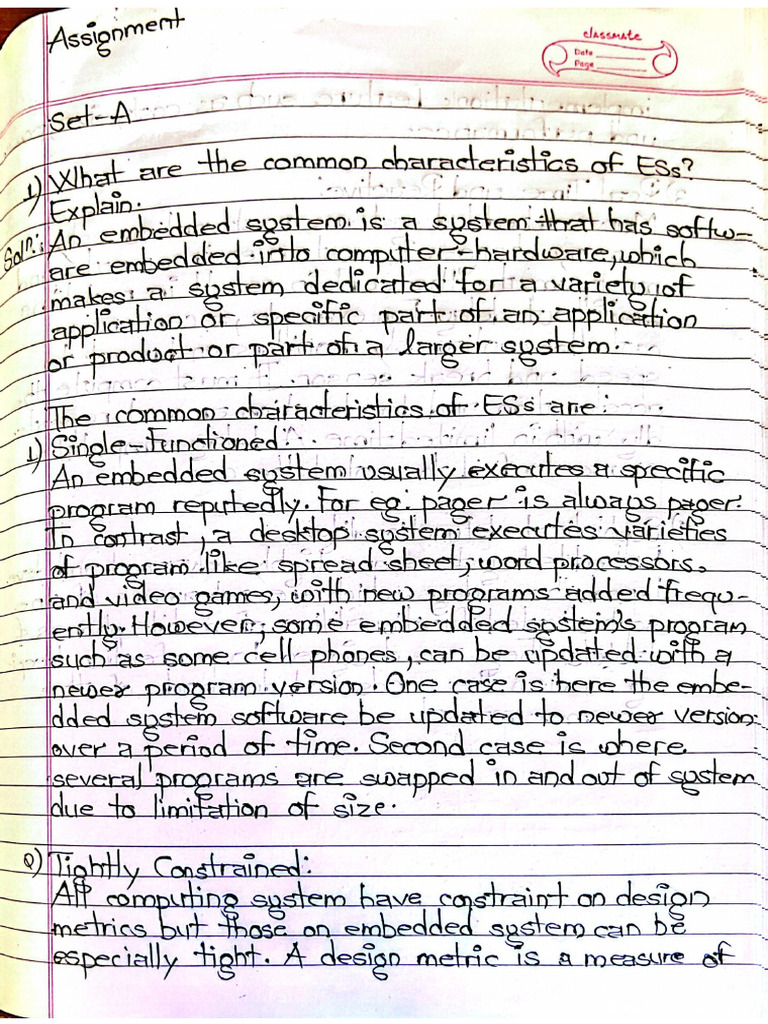 Assignment
classmate
Date
Page
Set-A
1) What are the common characteristics of ESs?
Explain.
Soln: An embedded system is a system that has softw-
are embedded into computer-hardware, which
makes a system dedicated for a variety of
application or specific part of an application
or product or part of a larger system.
The common characteristics of ESs are:
1) Single-Functioned
An embedded system usually executes a specific
program reputedly. For eg: pager is always pager.
In contrast, a desktop system executes varieties
of program like spread sheet, word processors,
and video games, with new programs added frequ-
ently. However, some embedded system's program
such as some cell phones, can be updated with a
newer program version. One case is here the embe-
dded system software be updated to newer version
over a period of time. Second case is where
several programs are swapped in and out of system
due to limitation of size.
2) Tightly Constrained:
All computing system have constraint on design
metrics but those on embedded system can be
especially tight. A design metric is a measure of